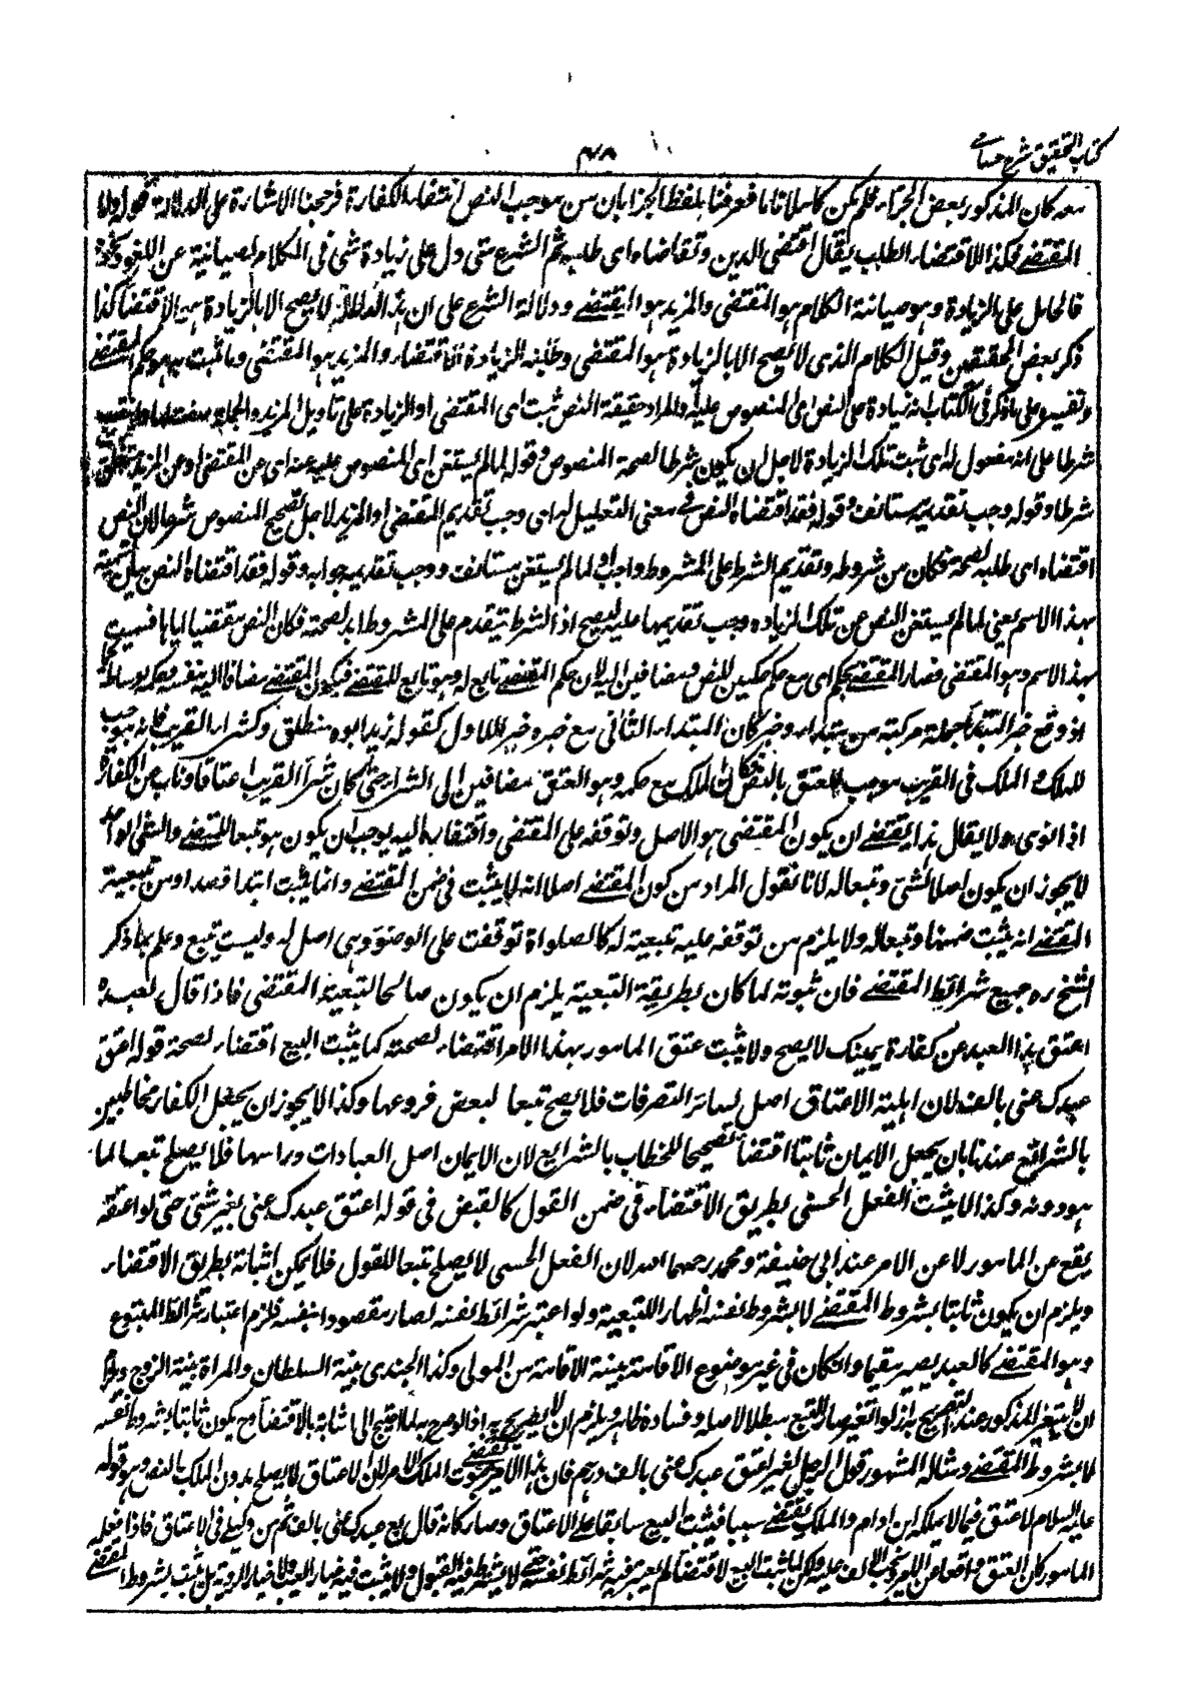 كتاب التحقيق شرح حسامى
٤٨
معه كان المذكور بعض الجزاء فلم يكن كاملا تاما فعرفنا بلفظ الجزا بان من موجب النص انتفاء الكفارة فرجحنا الاشارة على الدلالة قوله واما
المقتضى فكذا الاقتضاء الطلب يقال اقتضى الدين وتقاضاه اى طلبه ثم الشرع متى دل على زيادة شئ فى الكلام لصيانته عن اللغو ونحوه
فالحامل على الزيادة وهو صيانة الكلام هو المقتضى والمزيد هو المقتضى ودلالة الشرع على ان هذا الكلام لا يصح الا بالزيادة هى الاقتضا كذا
ذكر بعض المحققين وقيل الكلام الذى لا يصح الا بالزيادة هو المقتضى وطلبه الزيادة الاقتضاء والمزيد هو المقتضى وما ثبت به هو حكم المقتضى
وتفسيره على ما ذكر فى الكتاب انه زيادة على النص اى المنصوص عليه والمراد حقيقة النص ثبت اى المقتضى او الزيادة على تاويل المزيد والجملة صفة
شرطا على انه مفعول له اى ثبت تلك الزيادة لاجل ان يكون شرطا لصحة المنصوص وقوله لما لم يستغن اى المنصوص عليه عنه اى عن المقتضى او عن المزيد
شرطا وقوله وجب تقديمه مستانف وقوله فقد اقتضاه النص فى معنى التعليل له اى وجب تقديم المقتضى او المزيد لاجل تصحيح المنصوص شرعا لان النص
اقتضاه اى طلبه لصحته فكان من شروطه وتقديم الشرط على المشروط واجب او لما لم يستغن مستانف ووجب تقديمه جوابه وقوله فقد اقتضاه النص بيان تسميته
بهذا الاسم يعنى لما لم يستغن النص عن تلك الزيادة وجب تقديمها عليه ليصح اذ الشرط يتقدم على المشروط ابد لصحته فكان النص مقتضيا اياها فسميت
بهذا الاسم وهو المقتضى فصار المقتضى بحكمه اى مع حكمه حكمين للنص ومضافين اليه لان حكم المقتضى تابع له وهو تابع للمقتضى فيكون المقتضى مضافا اليه بنفسه وحكمه بوساطة
اذ وقع خبر المبتدا جملة مركبة من مبتداء وخبر كان المبتداء الثانى مع خبره خبر للاول كقوله زيد ابوه منطلق وكشراء القريب فانه موجب
للملك و الملك فى القريب موجب للعتق بالنص فكان الملك مع حكمه وهو العتق مضافين الى الشراء حتى كان شرا القريب اعتاقا وناب عن الكفارة
اذا نوى ولا يقال هذا يقتضى ان يكون المقتضى هو الاصل وتوقفه على المقتضى وافتقاره اليه يوجب ان يكون هو تبعا للمقتضى والشئ الواحد
لا يجوز ان يكون اصلا لشئ وتبعا له لانا نقول المراد من كون المقتضى اصلا انه لا يثبت فى ضمن المقتضى وانما يثبت ابتدا قصدا ومن تبعية
المقتضى انه يثبت ضمنا وتبعا له ولا يلزم من توقفه عليه تبعيته له كالصلواة توقفت على الوضوء وهى اصل له وليست بتبع وعلم بما ذكر
الشيخ ره جميع شرائط المقتضى فان ثبوته لما كان بطريقة التبعية يلزم ان يكون صالحا لتبعية المقتضى فاذا قال لعبده
اعتق هذا العبد عن كفارة يمينك لا يصح ولا يثبت عتق المامور بهذا الامر اقتضاء لصحته كما يثبت البيع اقتضاء لصحة قوله اعتق
عبدك عنى بالف لان اهلية الاعتاق اصل لسائر التصرفات فلا يصح تبعا لبعض فروعها وكذا لا يجوز ان يجعل الكفار مخاطبين
بالشرائع عندنا بان يجعل الايمان ثابتا اقتضا تصحيحا للخطاب بالشرائع لان الايمان اصل العبادات وراسها فلا يصلح تبعا لما
هو دونه وكذا لا يثبت الفعل الحسى بطريق الاقتضاء فى ضمن القول كالقبض فى قوله اعتق عبدك عنى بغير شئ حتى لو اعتقه
يقع عن المامور لا عن الامر عند ابى حنيفة ومحمد رحمهما الله لان الفعل الحسى لا يصلح تبعا للقول فلا يمكن اثباته بطريق الاقتضاء
ويلزم ان يكون ثابتا بشروط المقتضى لا بشروط نفسه اظهارا للتبعية ولو اعتبر شرائط نفسه لصار مقصودا بنفسه فلزم اعتبار شرائط المتبوع
وهو المقتضى كالعبد يصير مقيما وان كان فى غير موضوع الاقامة بنية الاقامة من المولى وكذا الجندى بنية السلطان والمراة بنية الزوج ويلزم
ان لا يتغير المذكور عند التصريح به اذ لو تغير صار التبع مبطلا لاصله وفساده ظاهر ويلزم ان لا يصرح به اذ لو صرح به لما احتيج الى اثباته بالاقتضا وح يكون ثابتا بشروط نفسه
لا بشروط المقتضى ومثاله المشهور قول الرجل لغيره اعتق عبدك عنى بالف درهم فان هذا الامر يقتضى ثبوت الملك للامر لان الاعتاق لا يصلح بدون الملك بالنص وهو قوله
عليه السلام لا عتق فيما لا يملكه ابن ادم والملك يقتضى سببا فيثبت البيع سابقا على الاعتاق وصار كانه قال بع عبدك عنى بالف ثم كن وكيلى فى الاعتاق فاذا فعله
المامور كان العتق واقعا عن الامر ويجب الالف عليه ولكن لما ثبت البيع لاقتضا لم يعتبر فيه شرائط نفسه حتى لا يشترط فيه القبول ولا يثبت فيه خيار العيب ولا خيار الروية بل يثبت بشروط المقتضى